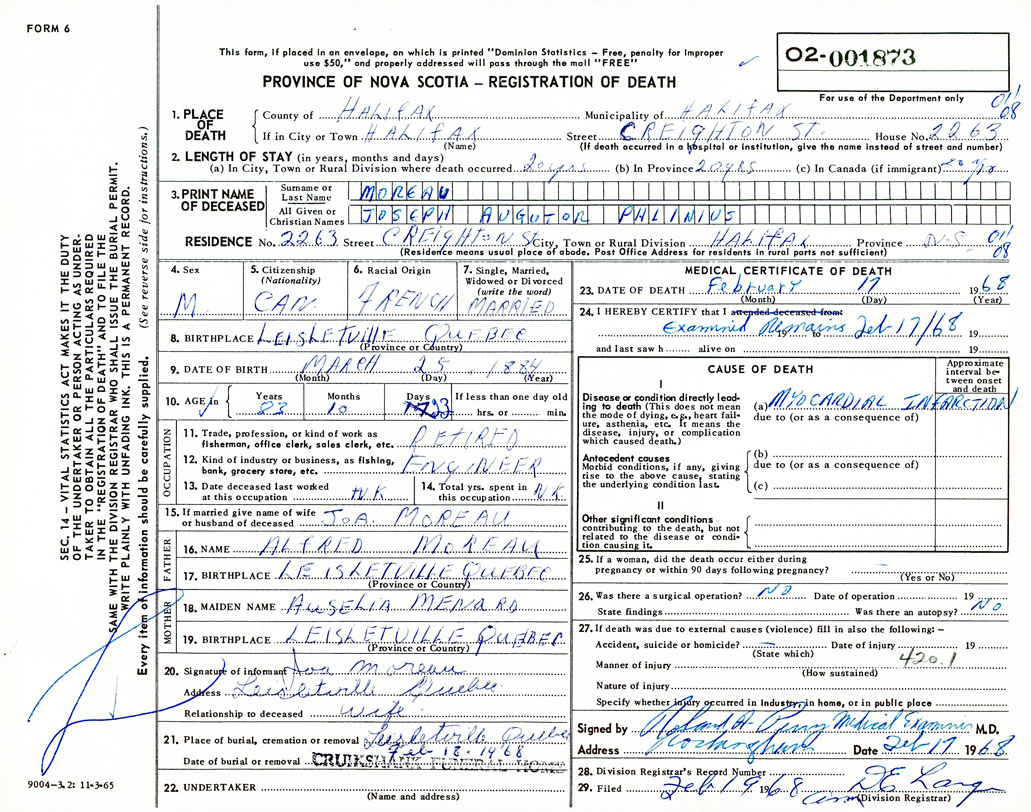 FORM 6
This form, if placed in an envelope, on which is printed "Dominion Statistics – Free, penalty for improper
use $50," and properly addressed will pass through the mail "FREE"
02-001873
PROVINCE OF NOVA SCOTIA – REGISTRATION OF DEATH
For use of the Department only
01/08
1. PLACE OF DEATH County of HALIFAX Municipality of HALIFAX
If in City or Town HALIFAX Street CREIGHTON ST. House No. 2263
(Name) (If death occurred in a hospital or institution, give the name instead of street and number)
2. LENGTH OF STAY (in years, months and days)
(a) In City, Town or Rural Division where death occurred 20 yrs (b) In Province 20 yrs (c) In Canada (if immigrant)
3. PRINT NAME OF DECEASED
Surname or Last Name MOREAU
All Given or Christian Names JOSEPH AUGUTOR PHLINIUS
RESIDENCE No. 2263 Street CREIGHTON St City, Town or Rural Division HALIFAX Province N-S. 01/08
(Residence means usual place of abode. Post Office Address for residents in rural parts not sufficient)
4. Sex M
5. Citizenship (Nationality) CAN.
6. Racial Origin FRENCH
7. Single, Married, Widowed or Divorced (write the word) MARRIED
8. BIRTHPLACE LEISLETVILLE QUEBEC
(Province or Country)
9. DATE OF BIRTH MARCH 25 1884
(Month) (Day) (Year)
10. AGE in Years 83 Months 10 Days 23 If less than one day old hrs. or min.
OCCUPATION
11. Trade, profession, or kind of work as fisherman, office clerk, sales clerk, etc. RETIRED
12. Kind of industry or business, as fishing, bank, grocery store, etc. ENGINEER
13. Date deceased last worked at this occupation N.K.
14. Total yrs. spent in this occupation N.K.
15. If married give name of wife or husband of deceased JOA. MOREAU
FATHER
16. NAME ALFRED MOREAU
17. BIRTHPLACE LEISLETVILLE QUEBEC
(Province or Country)
MOTHER
18. MAIDEN NAME AUSELIA MENARD
19. BIRTHPLACE LEISLETVILLE QUEBEC
(Province or Country)
20. Signature of informant Joa Moreau
Address Leisletville Quebec
Relationship to deceased wife
21. Place of burial, cremation or removal Leisletville Quebec
Date of burial or removal Feb 18. 1968
CRUIKSHANK FUNERAL HOME
22. UNDERTAKER
(Name and address)
MEDICAL CERTIFICATE OF DEATH
23. DATE OF DEATH February 17 1968
(Month) (Day) (Year)
24. I HEREBY CERTIFY that I attended deceased from:
Examined Remains Feb 17/68 19
and last saw h alive on 19
CAUSE OF DEATH
Approximate interval between onset and death
I
Disease or condition directly leading to death (This does not mean the mode of dying, e.g., heart failure, asthenia, etc. It means the disease, injury, or complication which caused death.)
(a) MYOCARDIAL INFARCTION
due to (or as a consequence of)
Antecedent causes
Morbid conditions, if any, giving rise to the above cause, stating the underlying condition last.
(b)
due to (or as a consequence of)
(c)
II
Other significant conditions
contributing to the death, but not related to the disease or condition causing it.
25. If a woman, did the death occur either during pregnancy or within 90 days following pregnancy?
(Yes or No)
26. Was there a surgical operation? NO Date of operation 19
State findings Was there an autopsy? NO
27. If death was due to external causes (violence) fill in also the following: –
Accident, suicide or homicide? Date of injury 19
(State which)
420.1
Manner of injury
(How sustained)
Nature of injury
Specify whether injury occurred in Industry, in home, or in public place
Signed by Medical Examiner M.D.
Address Rockingham Date Feb 17 1968
28. Division Registrar's Record Number
29. Filed Feb 19 1968
(Division Registrar)
SEC. 14 – VITAL STATISTICS ACT MAKES IT THE DUTY
OF THE UNDERTAKER OR PERSON ACTING AS UNDER-
TAKER TO OBTAIN ALL THE PARTICULARS REQUIRED
IN THE "REGISTRATION OF DEATH" AND TO FILE THE
SAME WITH THE DIVISION REGISTRAR WHO SHALL ISSUE THE BURIAL PERMIT.
WRITE PLAINLY WITH UNFADING INK. THIS IS A PERMANENT RECORD.
Every item of information should be carefully supplied. (See reverse side for instructions.)
9004-3.2: 11-3-65